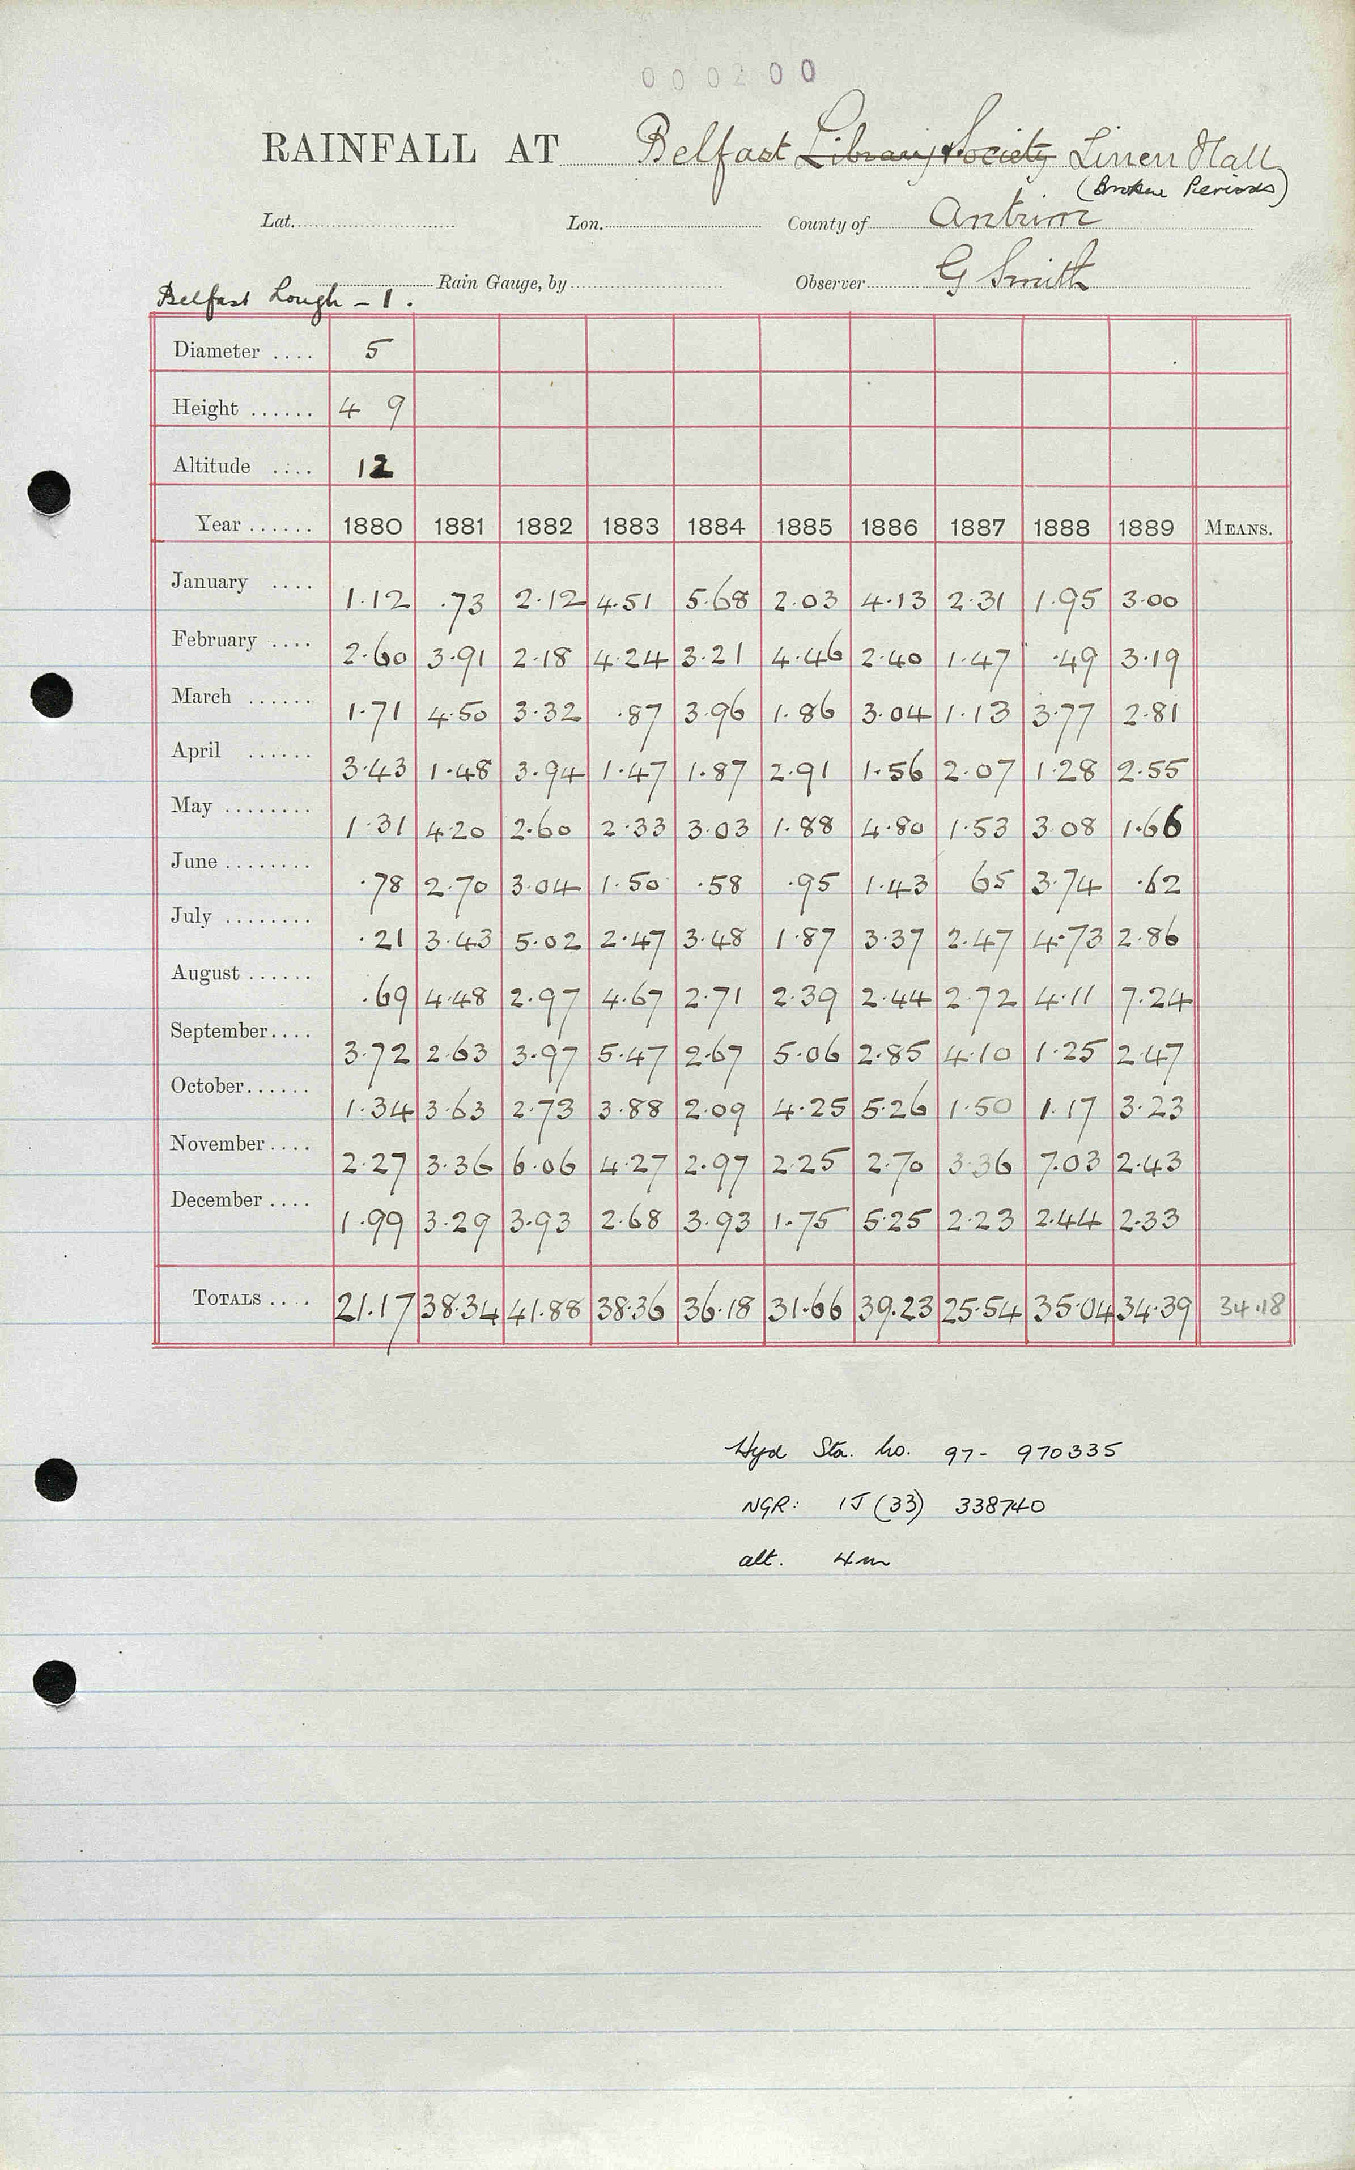 000200
RAINFALL AT Belfast Library Society Linen Hall
(Broken Periods)
Lat. Lon. County of Antrim
Rain Gauge, by Observer G Smith
Belfast Lough - 1.
Diameter .... 5
Height ...... 4 9
Altitude .... 12
Year ...... 1880 1881 1882 1883 1884 1885 1886 1887 1888 1889 MEANS.
January .... 1.12 .73 2.12 4.51 5.68 2.03 4.13 2.31 1.95 3.00
February .... 2.60 3.91 2.18 4.24 3.21 4.46 2.40 1.47 .49 3.19
March ...... 1.71 4.50 3.32 .87 3.96 1.86 3.04 1.13 3.77 2.81
April ...... 3.43 1.48 3.94 1.47 1.87 2.91 1.56 2.07 1.28 2.55
May ........ 1.31 4.20 2.60 2.33 3.03 1.88 4.80 1.53 3.08 1.66
June ........ .78 2.70 3.04 1.50 .58 .95 1.43 65 3.74 .62
July ........ .21 3.43 5.02 2.47 3.48 1.87 3.37 2.47 4.73 2.86
August ...... .69 4.48 2.97 4.67 2.71 2.39 2.44 2.72 4.11 7.24
September .... 3.72 2.63 3.97 5.47 2.67 5.06 2.85 4.10 1.25 2.47
October ...... 1.34 3.63 2.73 3.88 2.09 4.25 5.26 1.50 1.17 3.23
November .... 2.27 3.36 6.06 4.27 2.97 2.25 2.70 3.36 7.03 2.43
December .... 1.99 3.29 3.93 2.68 3.93 1.75 5.25 2.23 2.44 2.33
TOTALS .... 21.17 38.34 41.88 38.36 36.18 31.66 39.23 25.54 35.04 34.39 34.18
Hyd Sta. No. 97- 970335
NGR: IJ (33) 338740
alt. 4m